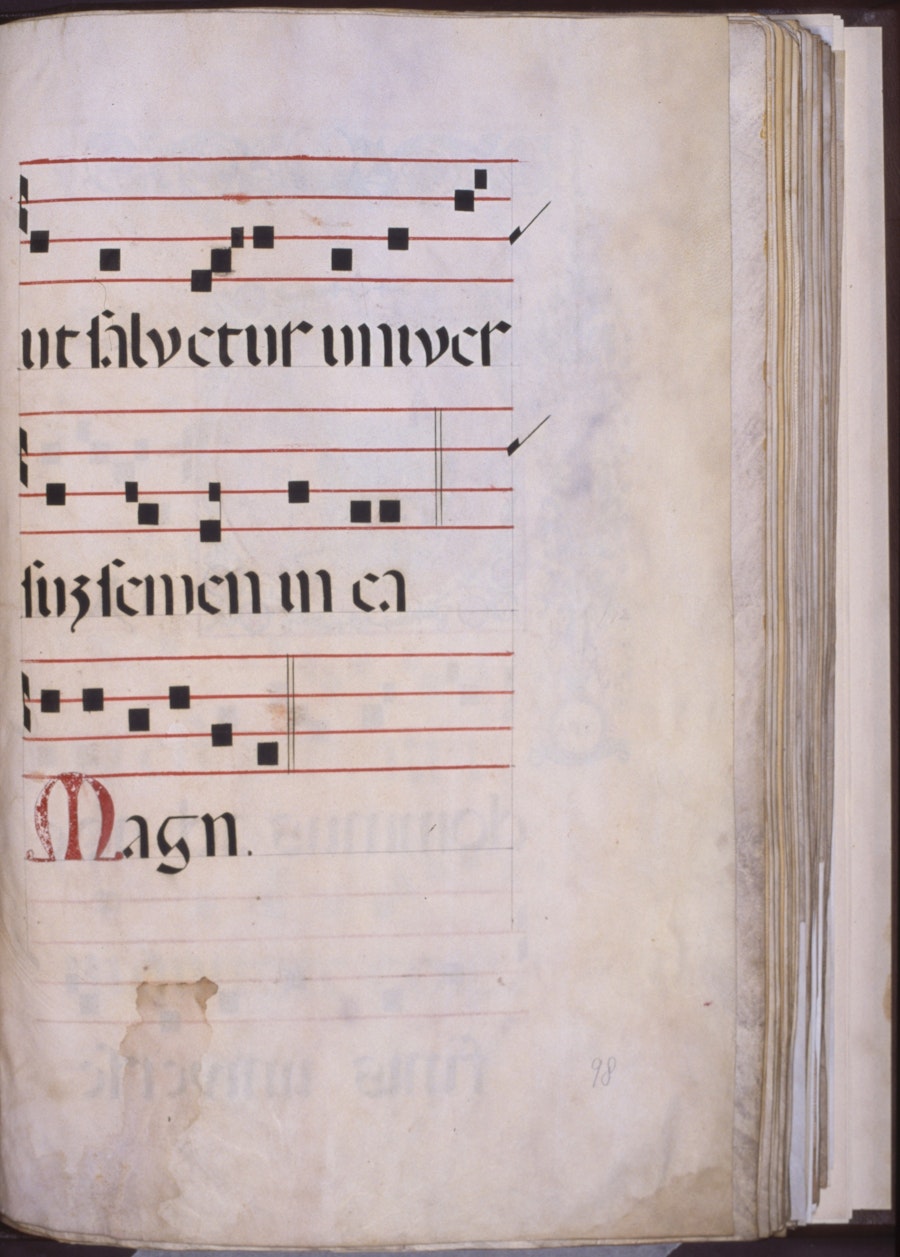 ut salvetur univer
suʒ semen in ea
Magn.
98